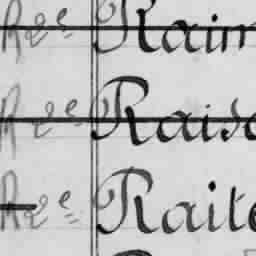 R 2e Raim
R 2e Raiso
R 2e Raite